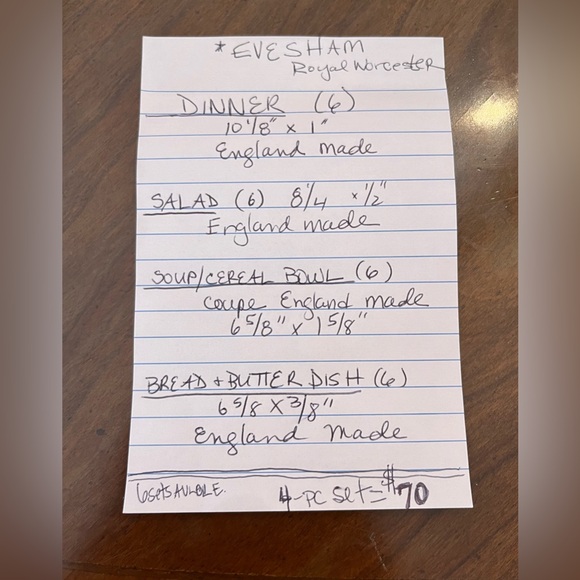 * EVESHAM
Royal Worcester
DINNER (6)
10 1/8" x 1"
England made
SALAD (6) 8 1/4 x 1/2"
England made
SOUP/CEREAL BOWL (6)
coupe England made
6 5/8" x 1 5/8"
BREAD + BUTTER DISH (6)
6 5/8 x 3/8"
England Made
6 sets AVLBLE.
4-PC Set = $70